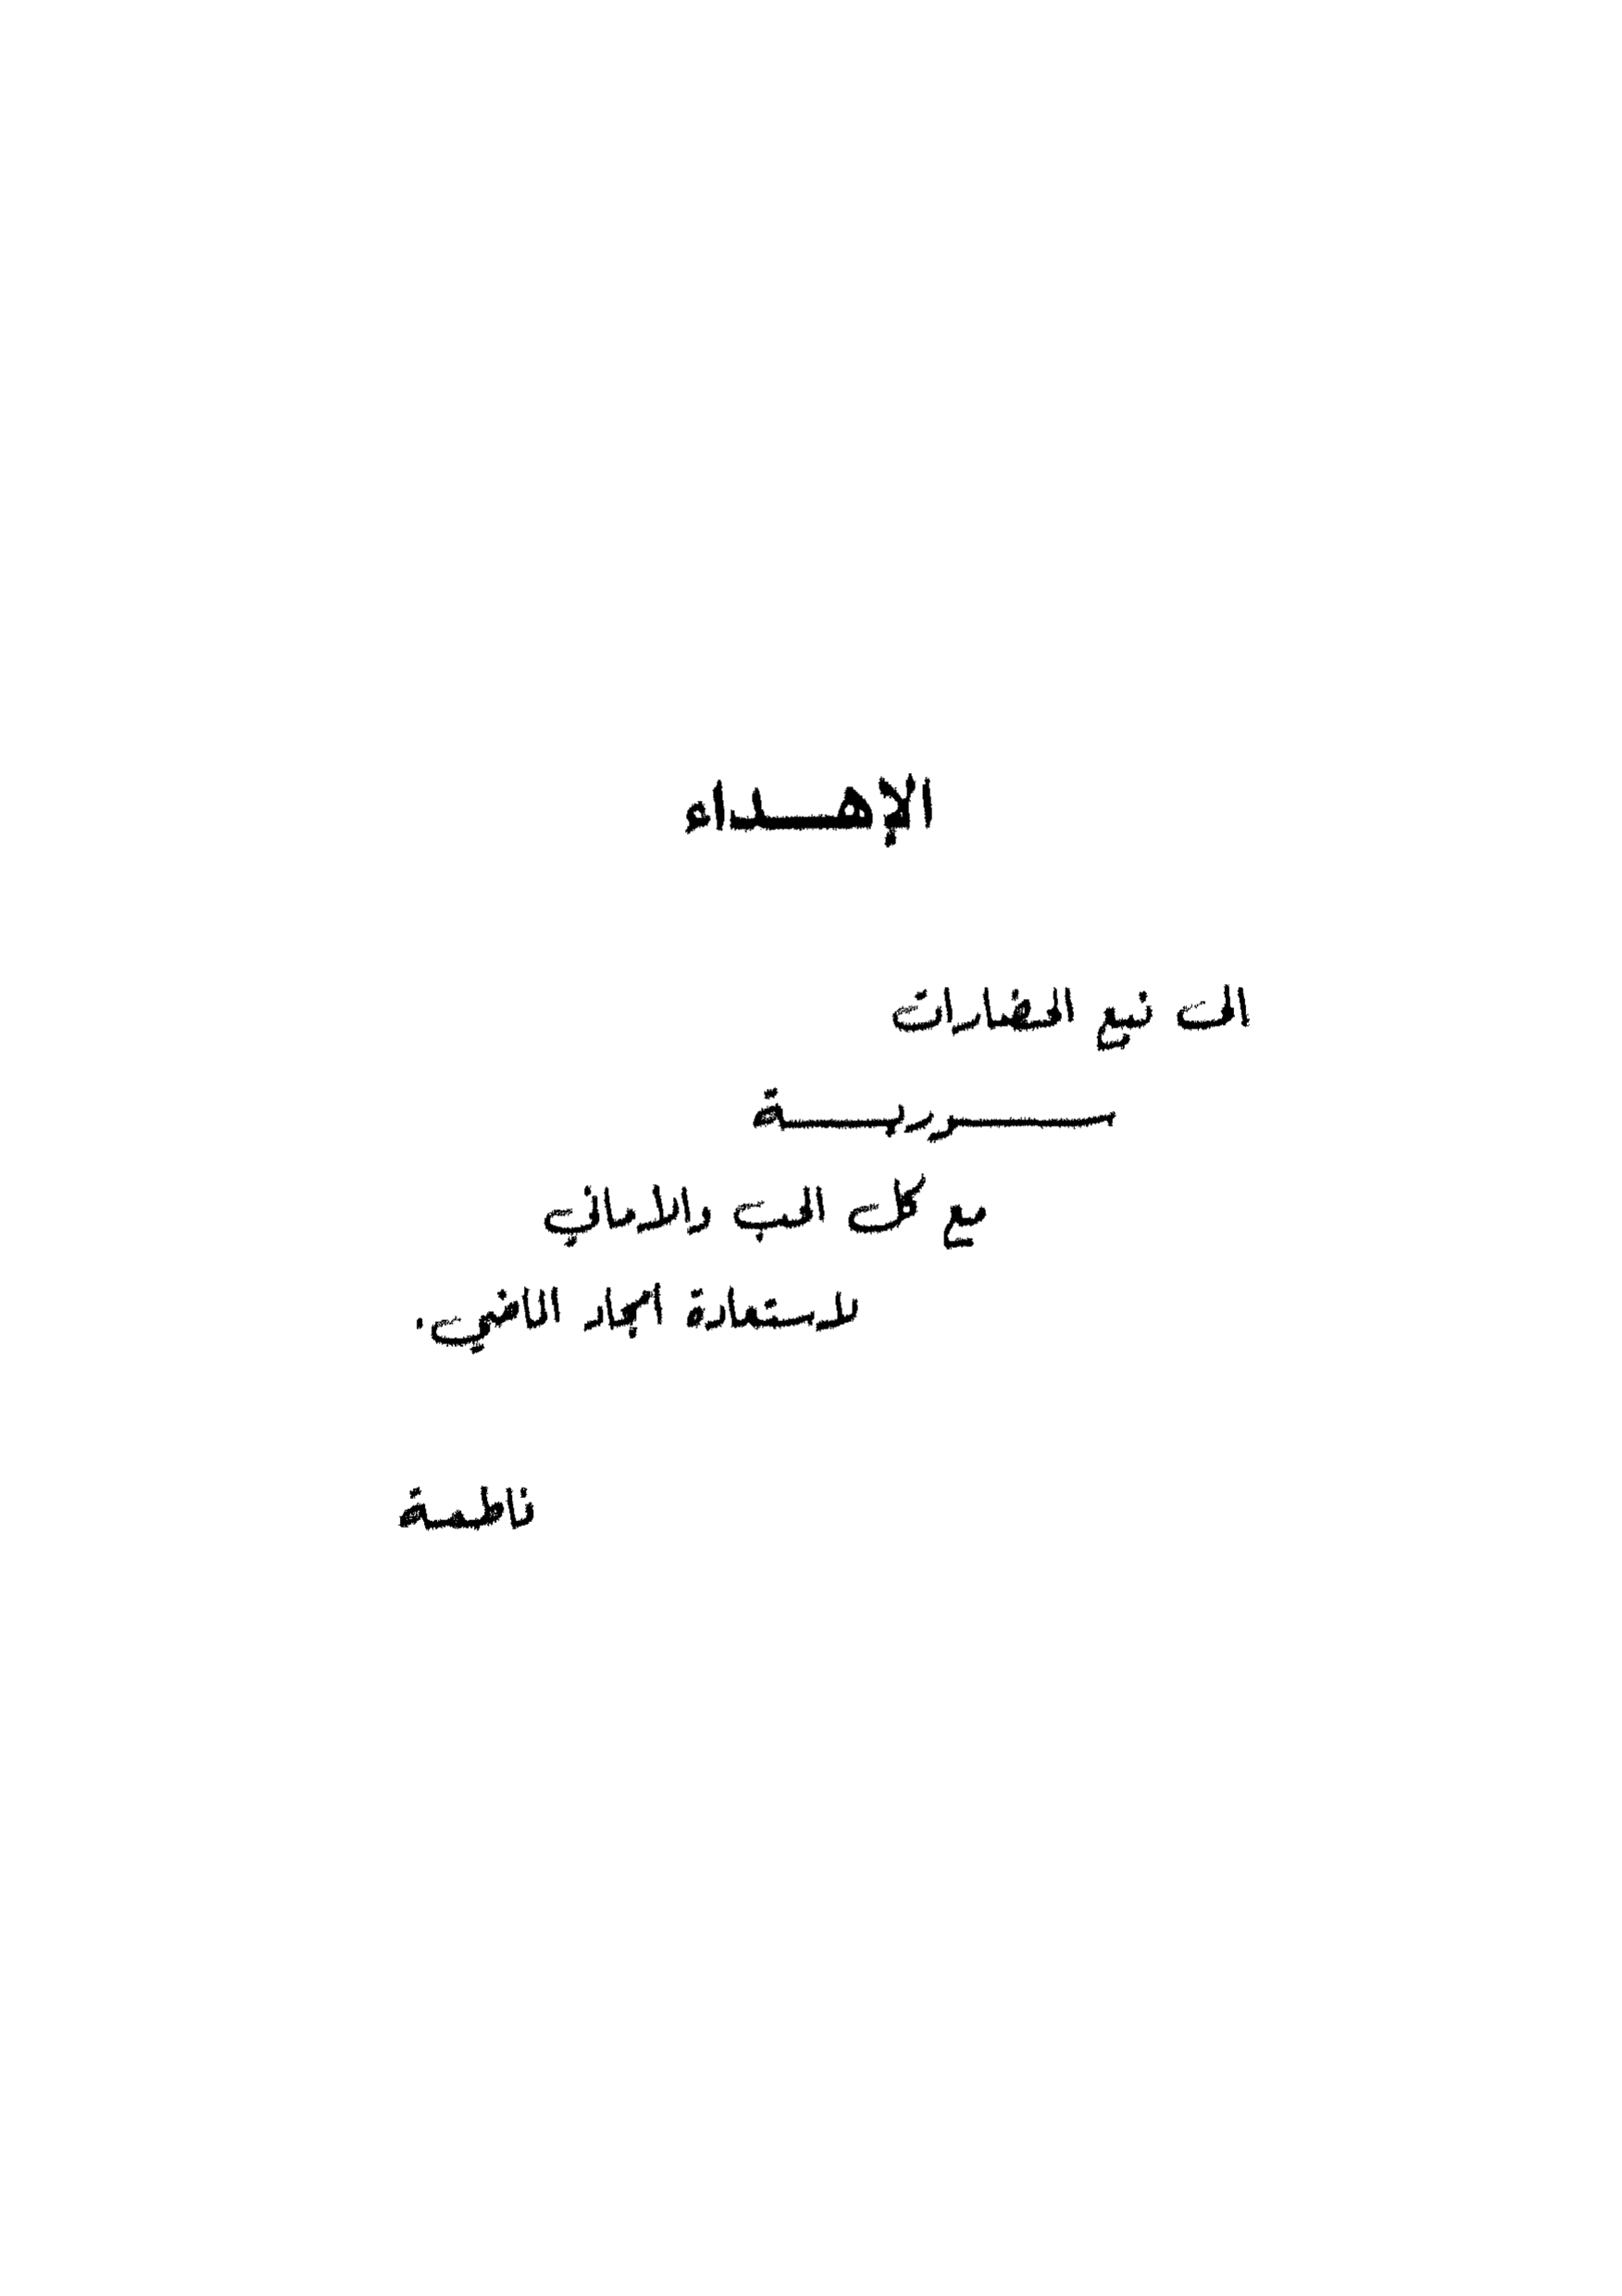 الإهـــداء
الى نبع الحضارات
ســـوريـــة
مع كل الحب والأماني
لاستعادة أمجاد الماضي.
فاطمة